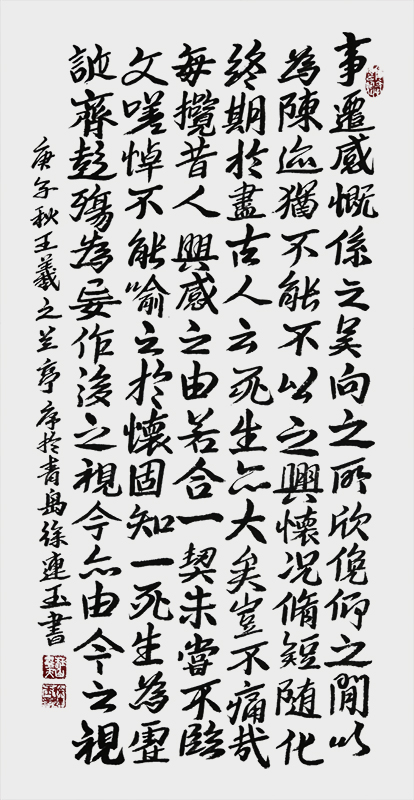 事遷感慨係之矣向之所欣俛仰之閒以
為陳迹猶不能不以之興懷况脩短随化
終期於盡古人云死生亦大矣豈不痛哉
每攬昔人興感之由若合一契未嘗不臨
文嗟悼不能喻之於懷固知一死生為虛
誕齊彭殤為妄作後之視今亦由今之視
庚午秋王羲之兰亭序於青島徐連玉書